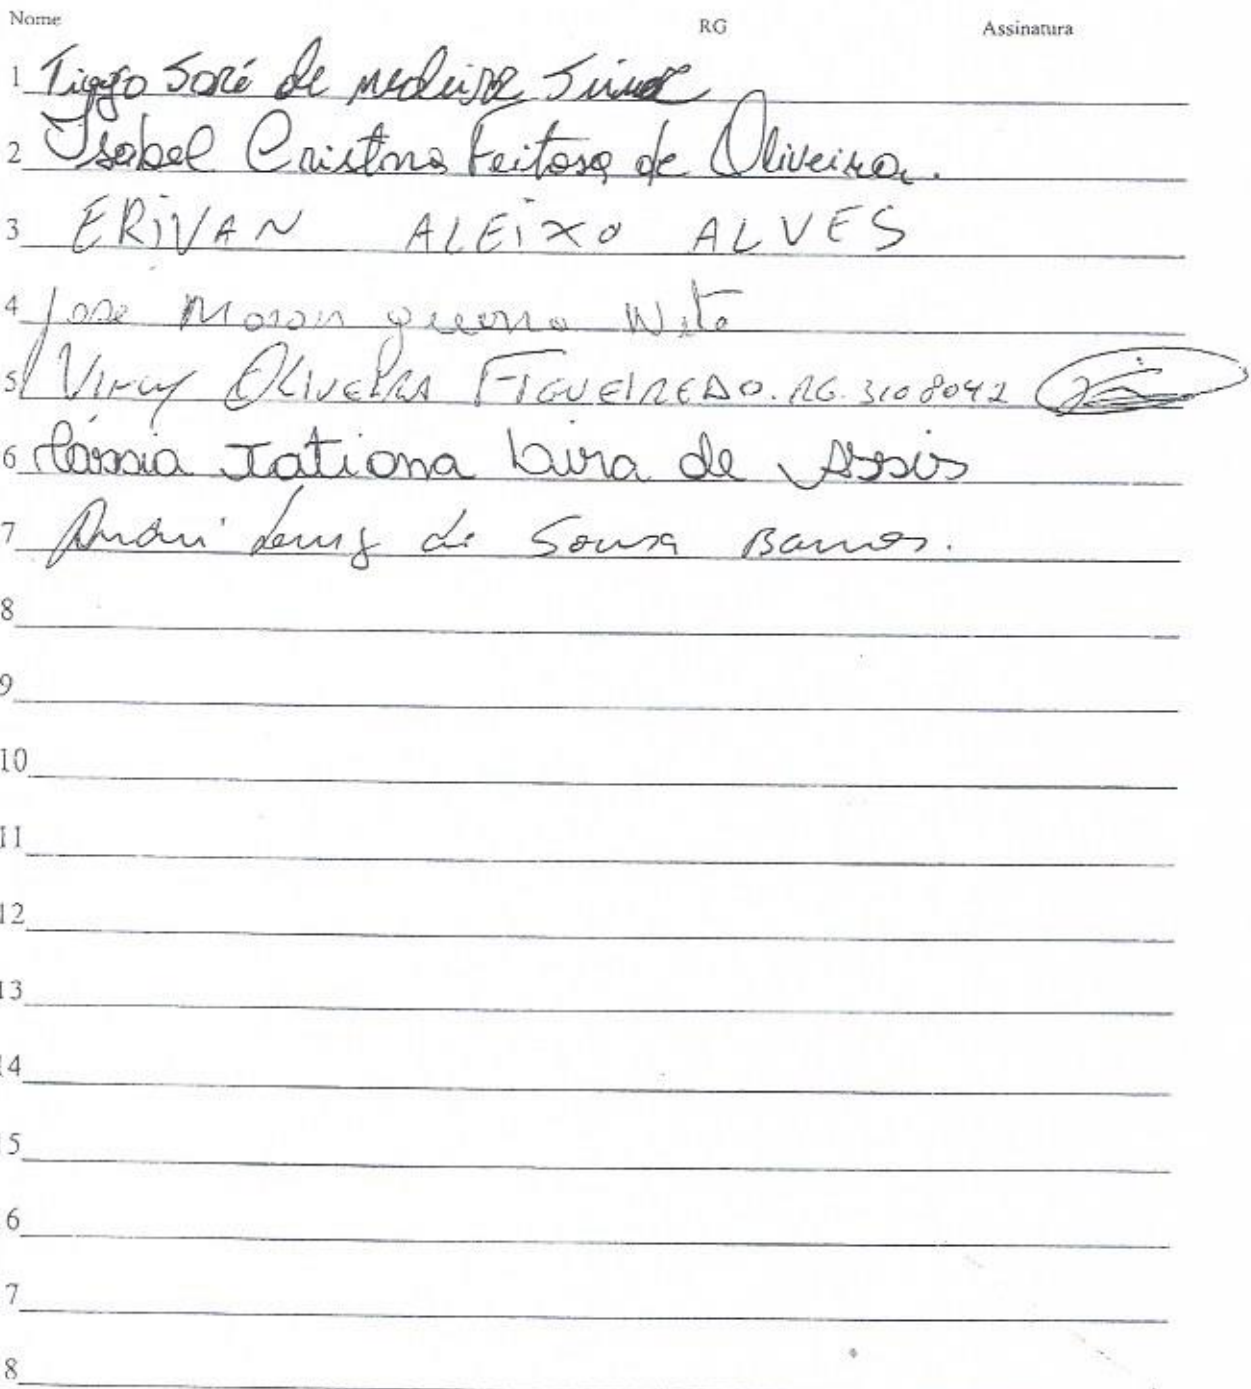 Nome RG Assinatura
1 Tiago José de medeiros
2 Isabel Cristina Feitosa de Oliveira.
3 ERIVAN ALEIXO ALVES
4 Jose Neto
5 OLIVEIRA FIGUEIREDO. RG. 3108042
6 Cássia Tatiana Lira de Assis
7 André Luiz de Sousa Barros.
8
9
10
11
12
13
14
15
6
7
8